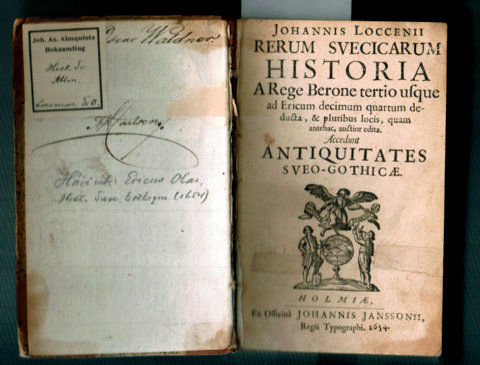 Joh. Ax. Almquists
Boksamling
Hist. Sv.
Allm.
Loccenius, E.O.
Oscar Waldner
Häri inb. Ericus Olai,
Hist. Suec. Gothorum (1654)
JOHANNIS LOCCENII
RERUM SVECICARUM
HISTORIA
A Rege Berone tertio usque
ad Ericum decimum quartum de-
ducta, & pluribus locis, quam
antehac, auctior edita.
Accedunt
ANTIQUITATES
SVEO-GOTHICÆ.
HOLMIÆ,
Ex Officinâ JOHANNIS JANSSONII,
Regii Typographi. 1654.